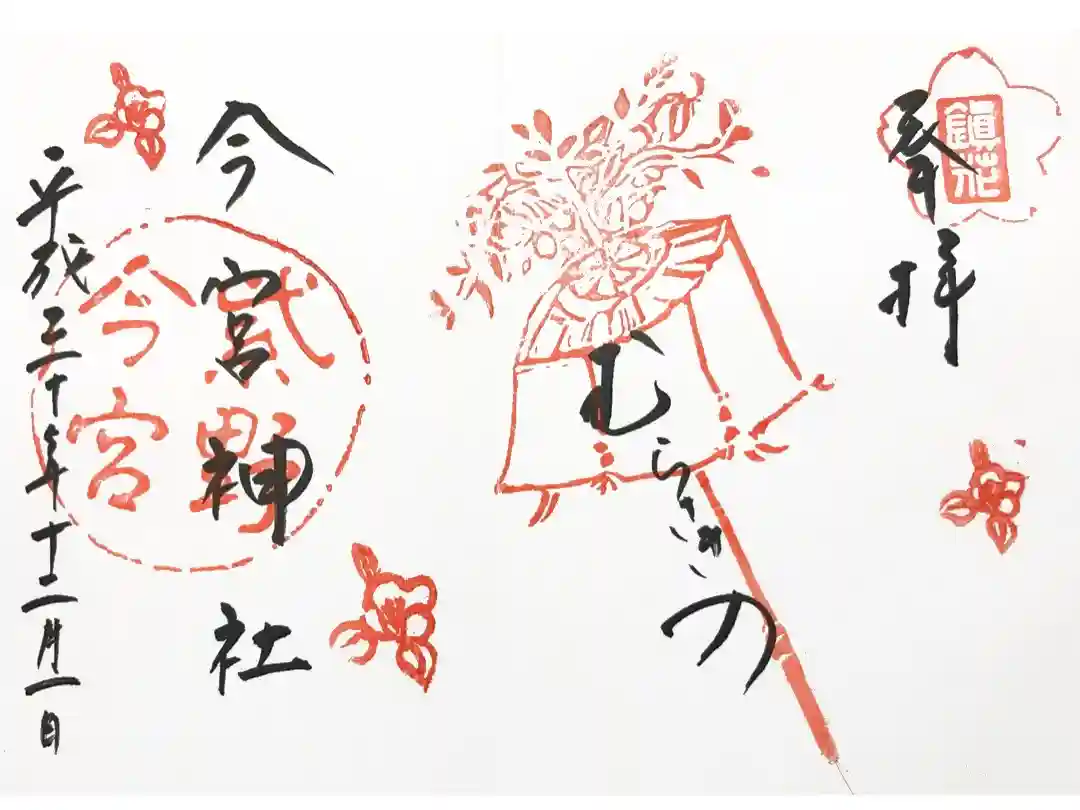 奉拝
鎭花
むらさきの
今宮神社
紫野
今宮
平成三十年十二月一日